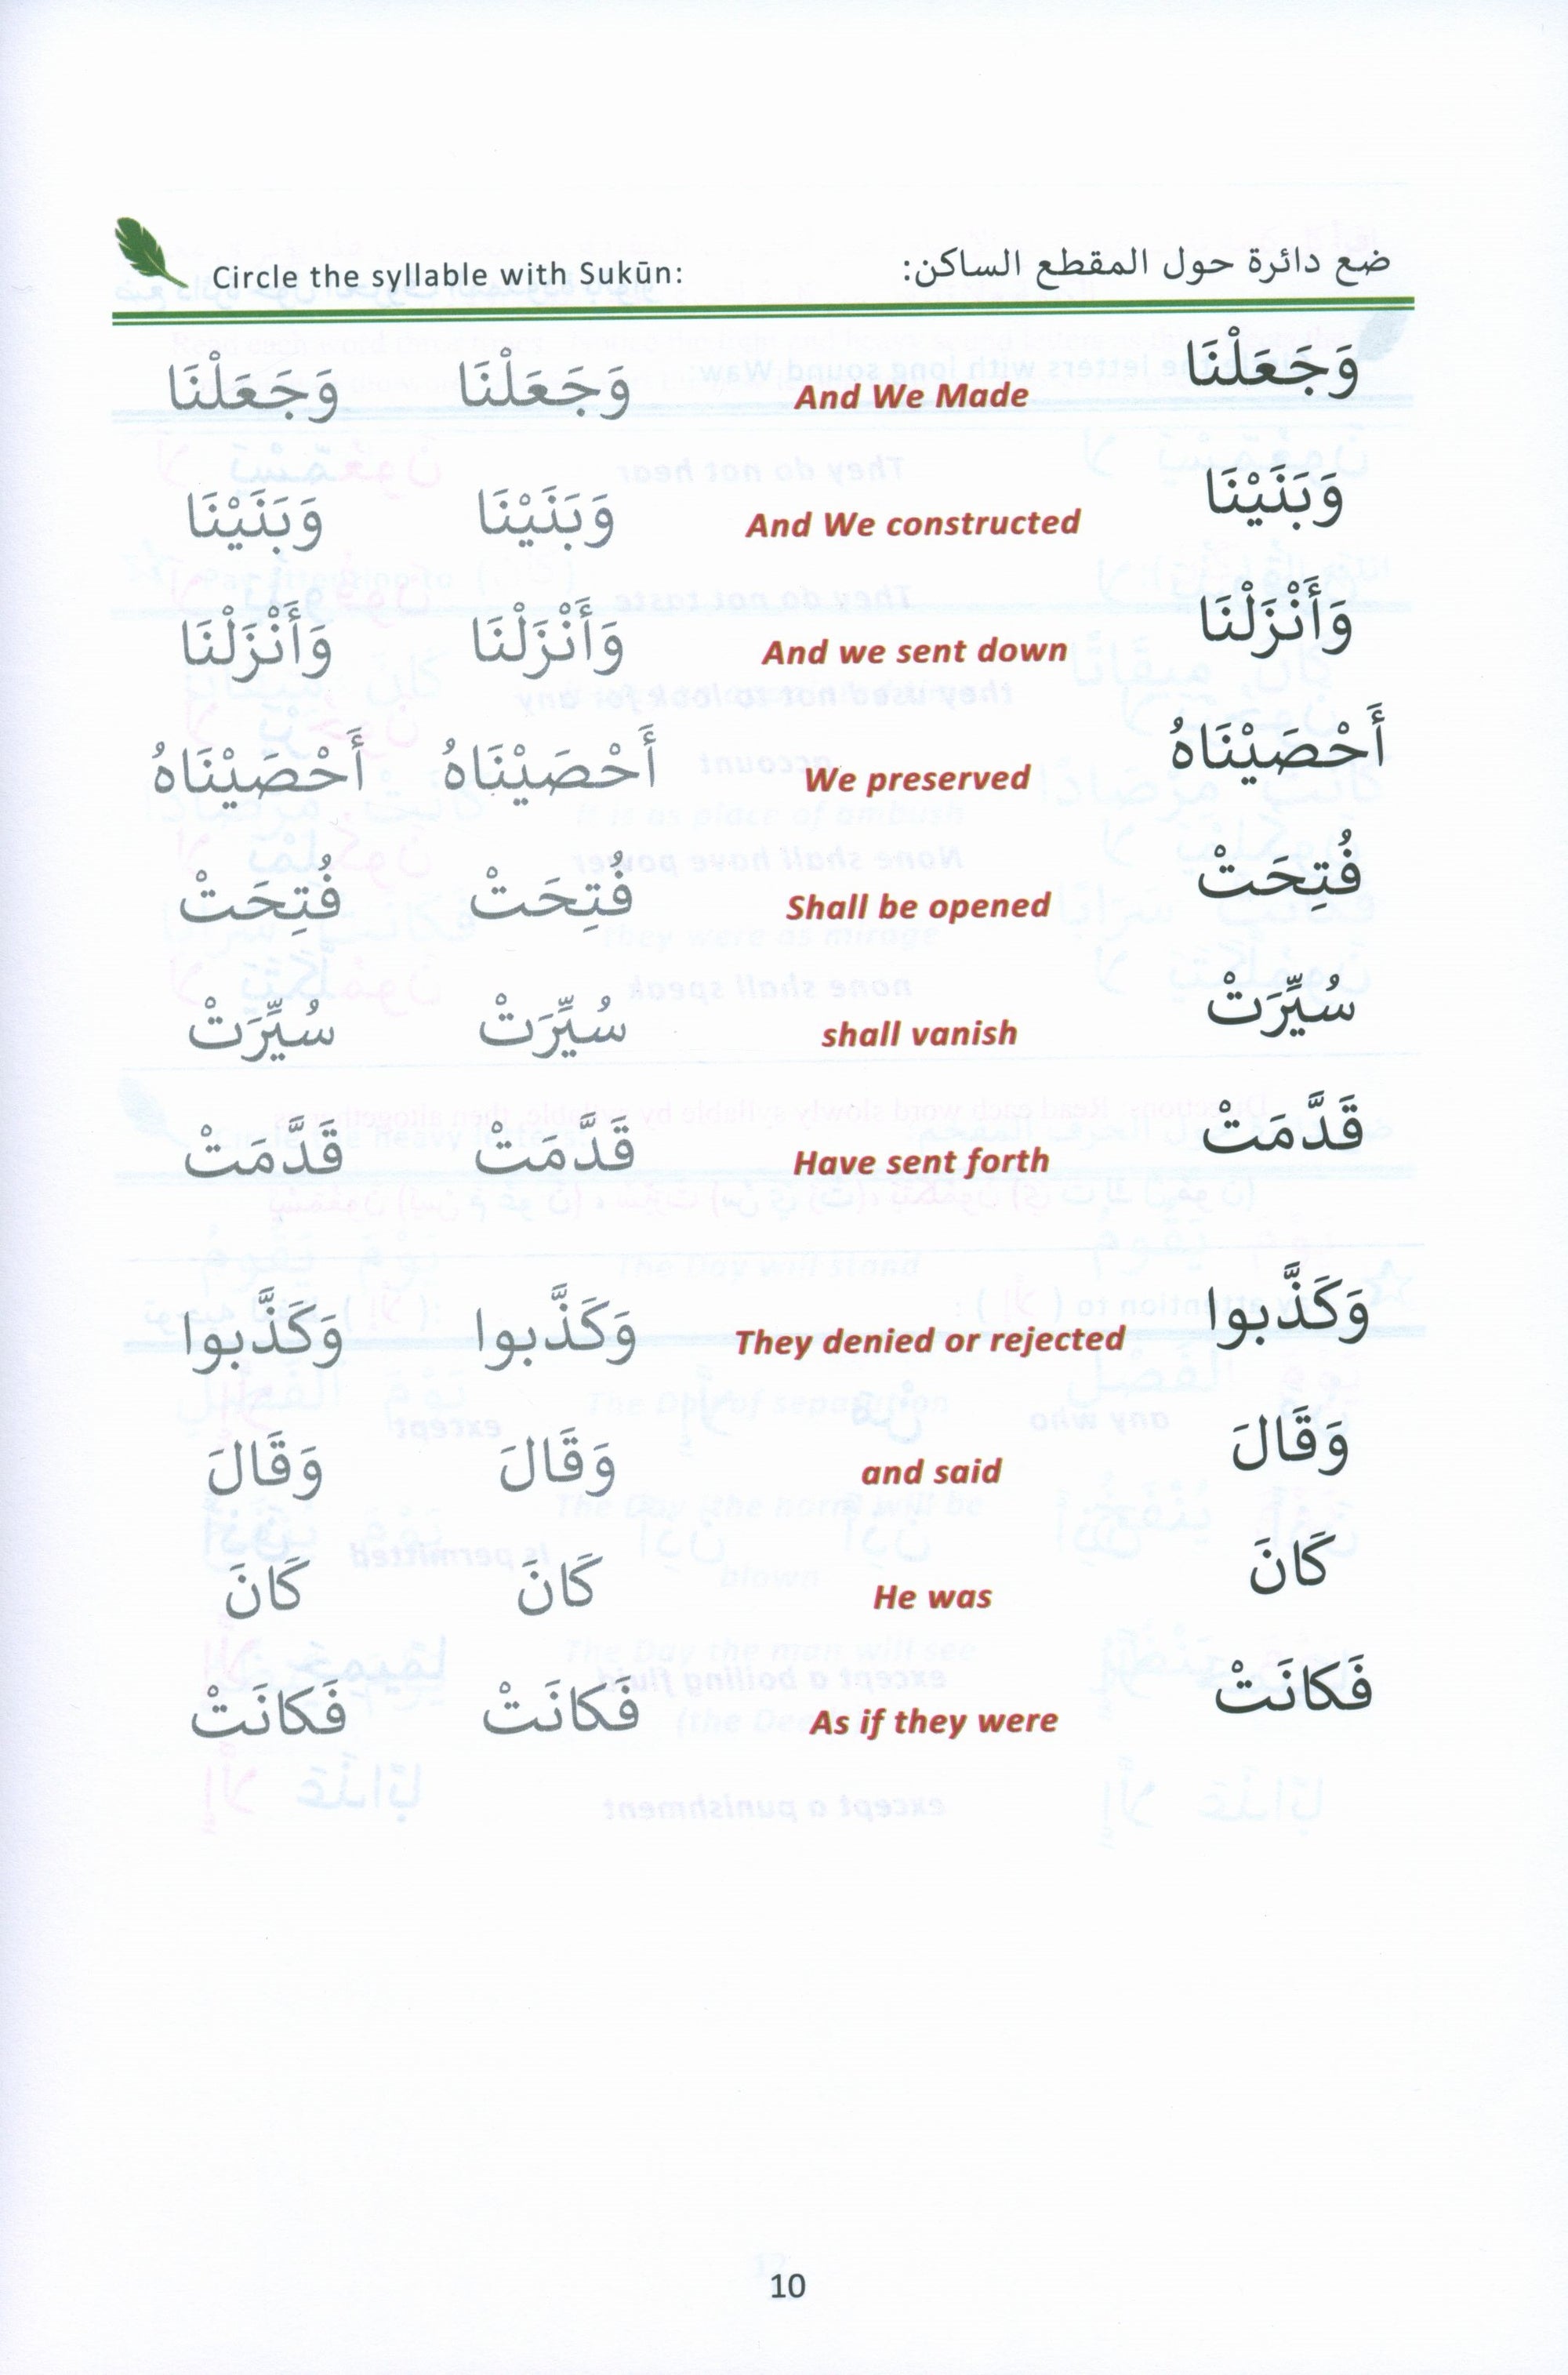 Circle the syllable with Sukūn: ضع دائرة حول المقطع الساكن:
وَجَعَلْنَا And We Made وَجَعَلْنَا وَجَعَلْنَا
وَبَنَيْنَا And We constructed وَبَنَيْنَا وَبَنَيْنَا
وَأَنْزَلْنَا And we sent down وَأَنْزَلْنَا وَأَنْزَلْنَا
أَحْصَيْنَاهُ We preserved أَحْصَيْنَاهُ أَحْصَيْنَاهُ
فُتِحَتْ Shall be opened فُتِحَتْ فُتِحَتْ
سُيِّرَتْ shall vanish سُيِّرَتْ سُيِّرَتْ
قَدَّمَتْ Have sent forth قَدَّمَتْ قَدَّمَتْ
وَكَذَّبوا They denied or rejected وَكَذَّبوا وَكَذَّبوا
وَقَالَ and said وَقَالَ وَقَالَ
كَانَ He was كَانَ كَانَ
فَكانَتْ As if they were فَكانَتْ فَكانَتْ
10